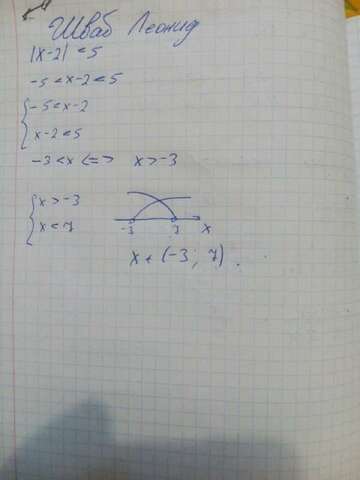 Шваб Леонид
|x-2| < 5
-5 < x-2 < 5
{ -5 < x-2
x-2 < 5
-3 < x <=> x > -3
{ x > -3
x < 7
-3 7 x
x ∈ (-3; 7).